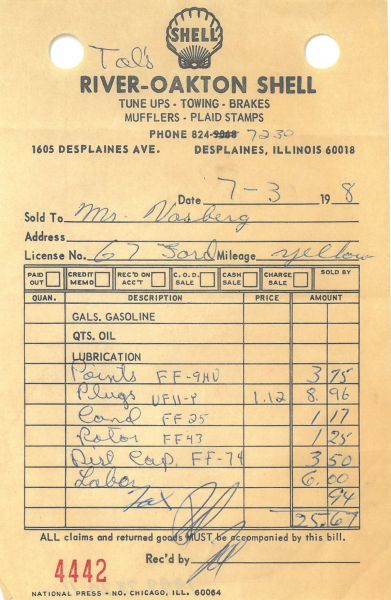 SHELL
Tol's
RIVER-OAKTON SHELL
TUNE UPS - TOWING - BRAKES
MUFFLERS - PLAID STAMPS
PHONE 824-9068 7230
1605 DESPLAINES AVE. DESPLAINES, ILLINOIS 60018
Date 7-3 198
Sold To Mr. Vosberg
Address
License No. 67 Ford Mileage yellow
PAID OUT CREDIT MEMO REC'D ON ACC'T C.O.D. SALE CASH SALE CHARGE SALE SOLD BY
QUAN. DESCRIPTION PRICE AMOUNT
GALS. GASOLINE
QTS. OIL
LUBRICATION
Points FF-9HV 3 75
Plugs UF11-P 1.12 8.96
Cond FF25 1 17
Rotor FF43 1 25
Dist Cap. FF-74 3 50
Labor 6.00
Tax 94
25.67
ALL claims and returned goods MUST be accompanied by this bill.
4442 Rec'd by
NATIONAL PRESS - NO. CHICAGO, ILL. 60064